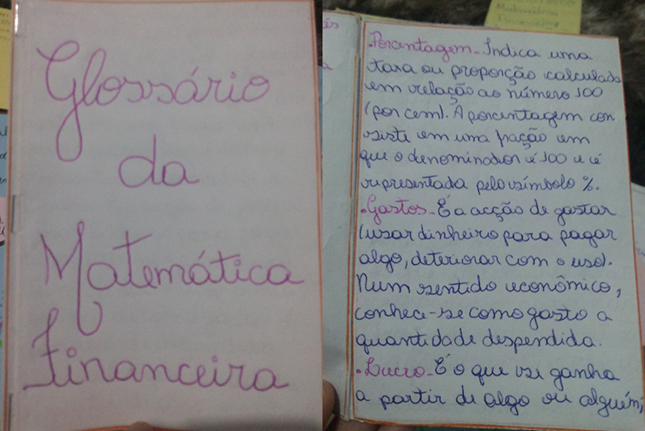 Glossário
da
Matemática
Financeira
.Porcentagem - Indica uma
taxa ou proporção calculada
em relação ao número 100
(por cem). A porcentagem con
siste em uma fração em
que o denominador é 100 e é
representada pelo símbolo %.
.Gastos - É a acção de gastar
(usar dinheiro para pagar
algo, deteriorar com o uso).
Num sentido econômico,
conhece-se como gasto a
quantidade despendida.
.Lucro - É o que se ganha
a partir de algo ou alguém;